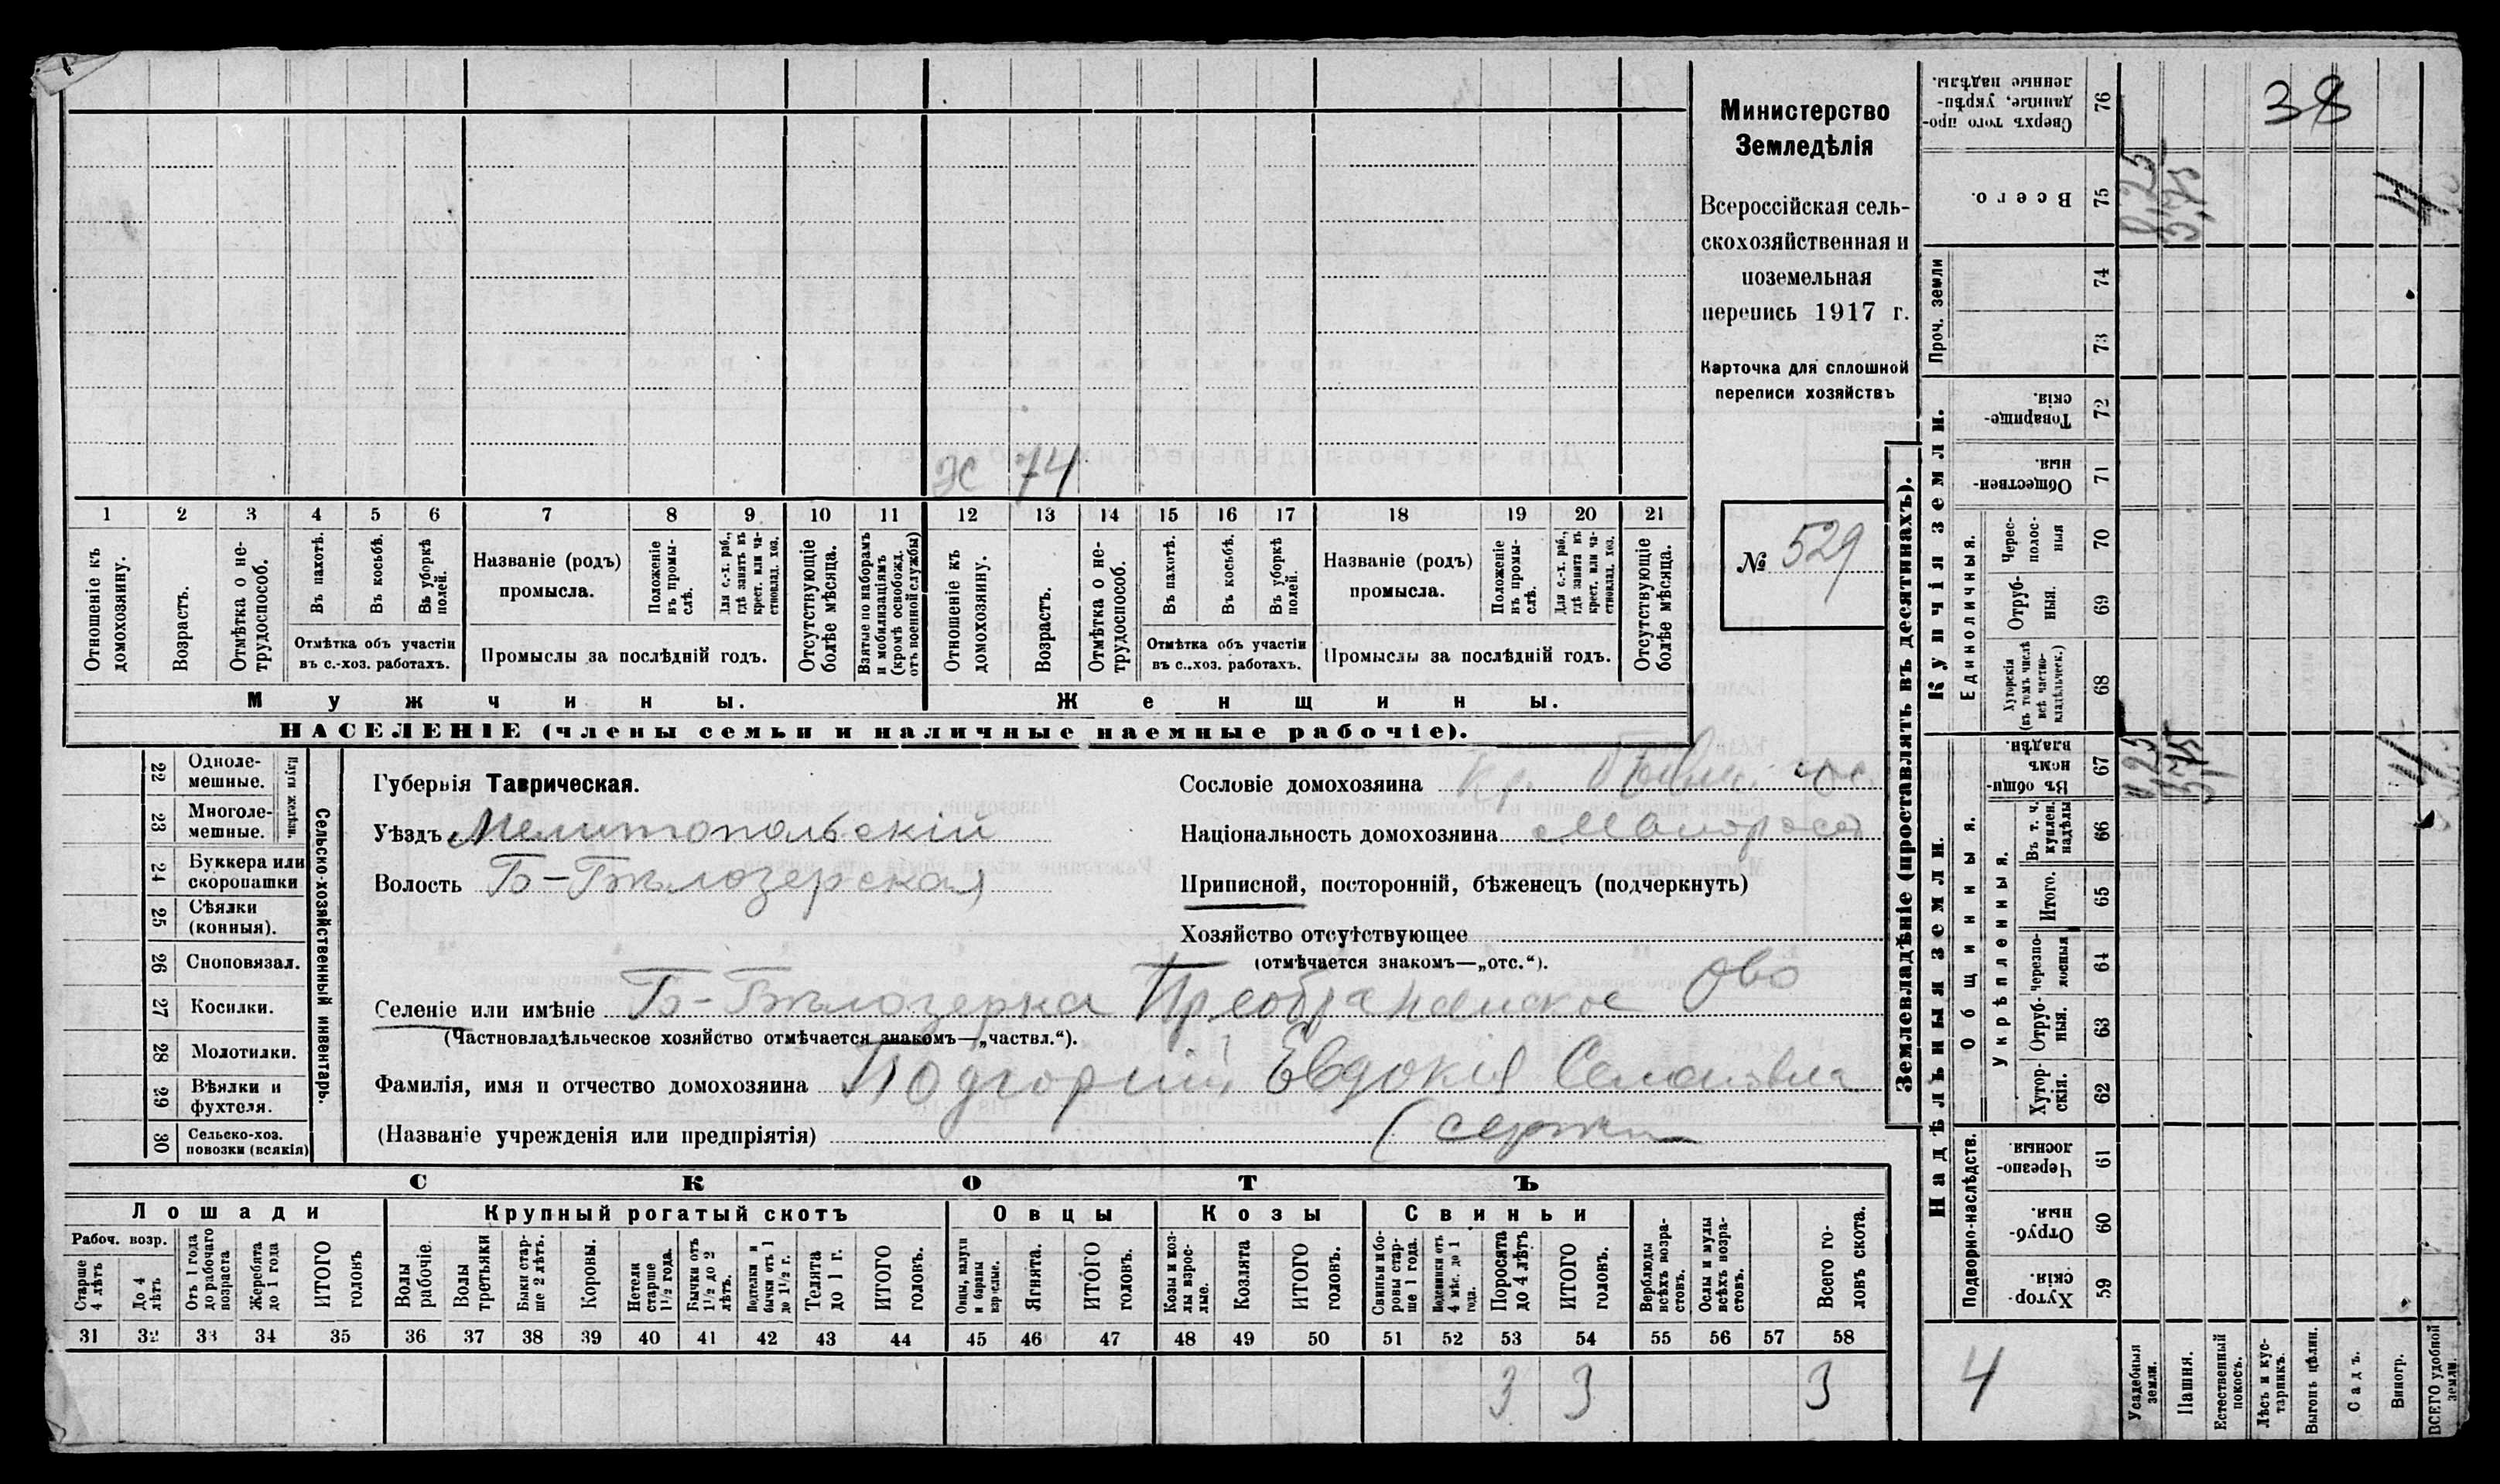 Министерство
Земледѣлія
Всероссійская сель-
скохозяйственная и
поземельная
перепись 1917 г.
Карточка для сплошной
переписи хозяйствъ
№ 529
38
ж 74
1 2 3 4 5 6 7 8 9 10 11 12 13 14 15 16 17 18 19 20 21
Отношеніе къ домохозяину.
Возрастъ.
Отмѣтка о не-трудоспособ.
Въ пахотѣ.
Въ косьбѣ.
Въ уборкѣ полей.
Отмѣтка объ участіи
въ с.-хоз. работахъ.
Названіе (родъ)
промысла.
Положеніе въ промы-слѣ.
Для с.-х. раб., гдѣ занятъ въ крест. или ча-стновлад. хоз.
Промыслы за послѣдній годъ.
Отсутствующіе болѣе мѣсяца.
Взятые по наборамъ и мобилизаціямъ (кромѣ освобожд. отъ военной службы)
Отношеніе къ домохозяину.
Возрастъ.
Отмѣтка о не-трудоспособ.
Въ пахотѣ.
Въ косьбѣ.
Въ уборкѣ полей.
Отмѣтка объ участіи
въ с..хоз. работахъ.
Названіе (родъ)
промысла.
Положеніе въ промы-слѣ.
Для с.-х. раб., гдѣ занята въ крест. или ча-стновлад. хоз.
Промыслы за послѣдній годъ.
Отсутствующіе болѣе мѣсяца.
Мужчины.
Женщины.
НАСЕЛЕНІЕ (члены семьи и наличные наемные рабочіе).
Сельско-хозяйственный инвентарь.
22 Одноле-мешные.
23 Многоле-мешные.
24 Буккера или скоропашки
25 Сѣялки (конныя).
26 Сноповязал.
27 Косилки.
28 Молотилки.
29 Вѣялки и фухтеля.
30 Сельско-хоз. повозки (всякія)
Губернія Таврическая.
Уѣздъ Мелитопольскій
Волость Б-Бѣлозерская
Сословіе домохозяина Кр.
Національность домохозяина Малоросс
Приписной, посторонній, бѣженецъ (подчеркнуть)
Хозяйство отсутствующее
(отмѣчается знакомъ—„отс.“).
Селеніе или имѣніе Б-Бѣлозерка Преображенское Ово
(Частновладѣльческое хозяйство отмѣчается знакомъ—„частвл.“).
Фамилія, имя и отчество домохозяина Подгорній Евдокія
(Названіе учрежденія или предпріятія)
СКОТЪ
Лошади
Крупный рогатый скотъ
Овцы
Козы
Свиньи
Рабоч. возр.
Старше 4 лѣтъ
До 4 лѣтъ
Отъ 1 года до рабочаго возраста
Жеребята до 1 года
ИТОГО головъ
Волы рабочіе.
Волы третьяки
Быки стар-ше 2 лѣтъ.
Коровы.
Нетели старше 1½ года.
Бычки отъ 1½ до 2 лѣтъ.
Подтелки и бычки отъ 1 до 1½ г.
Телята до 1 г.
ИТОГО головъ.
Овцы, валухи и бараны взрослые.
Ягнята.
ИТОГО головъ.
Козы и коз-лы взрос-лые.
Козлята
ИТОГО головъ.
Свиньи и бо-ровы стар-ше 1 года.
Подсвинки отъ 4 мѣс. до 1 года.
Поросята до 4 лѣтъ
ИТОГО головъ.
Верблюды всѣхъ возра-стовъ.
Ослы и мулы всѣхъ возра-стовъ.
Всего го-ловъ скота.
31 32 33 34 35 36 37 38 39 40 41 42 43 44 45 46 47 48 49 50 51 52 53 54 55 56 57 58
3 3 3
Землевладѣніе (проставлять въ десятинахъ).
Купчія земли.
Надѣльныя земли.
Сверхъ того про-даннаые, укрѣп-ленные надѣлы. 76
Всего. 75
0,25
3,75
4
Проч. земли
74
73
Товарище-скія. 72
Обществен-ныя. 71
Единоличныя.
Черес-полос-ныя 70
Отруб-ныя. 69
Хуторскія (въ томъ числѣ всѣ частно-владѣльческ.) 68
Въ общи-номъ владѣн. 67
0,25
3,75
4
Общинныя.
Укрѣпленныя.
Въ т. ч. куплен. надѣлы 66
Итого. 65
Черезпо-лосныя 64
Отруб-ныя. 63
Хутор-скія. 62
Подворно-наслѣдств.
Черезпо-лосныя 61
Отруб-ныя. 60
Хутор-скія. 59
4
Усадебныя земли.
Пашня.
Естественный покосъ.
Лѣсъ и кус-тарникъ.
Выгонъ цѣлин.
Садъ.
Виногр.
ВСЕГО удобной земли.